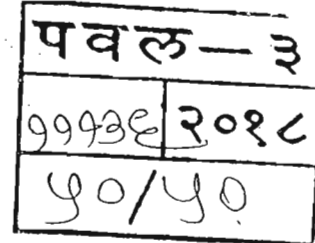 पवल – ३
११९३६ २०१८
५०/५०